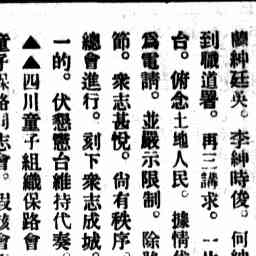 蘭紳廷英。李紳時俊。何紳
到職道署。再三講求。一步
台。俯念土地人民。據情代
爲電請。並嚴示限制。除路
節。衆志甚悅。尙有秩序。
總會進行。刻下衆志成城。
一的。伏懇憲台維持代奏。
▲▲四川童子組織保路會
童子保路同志會。設該會